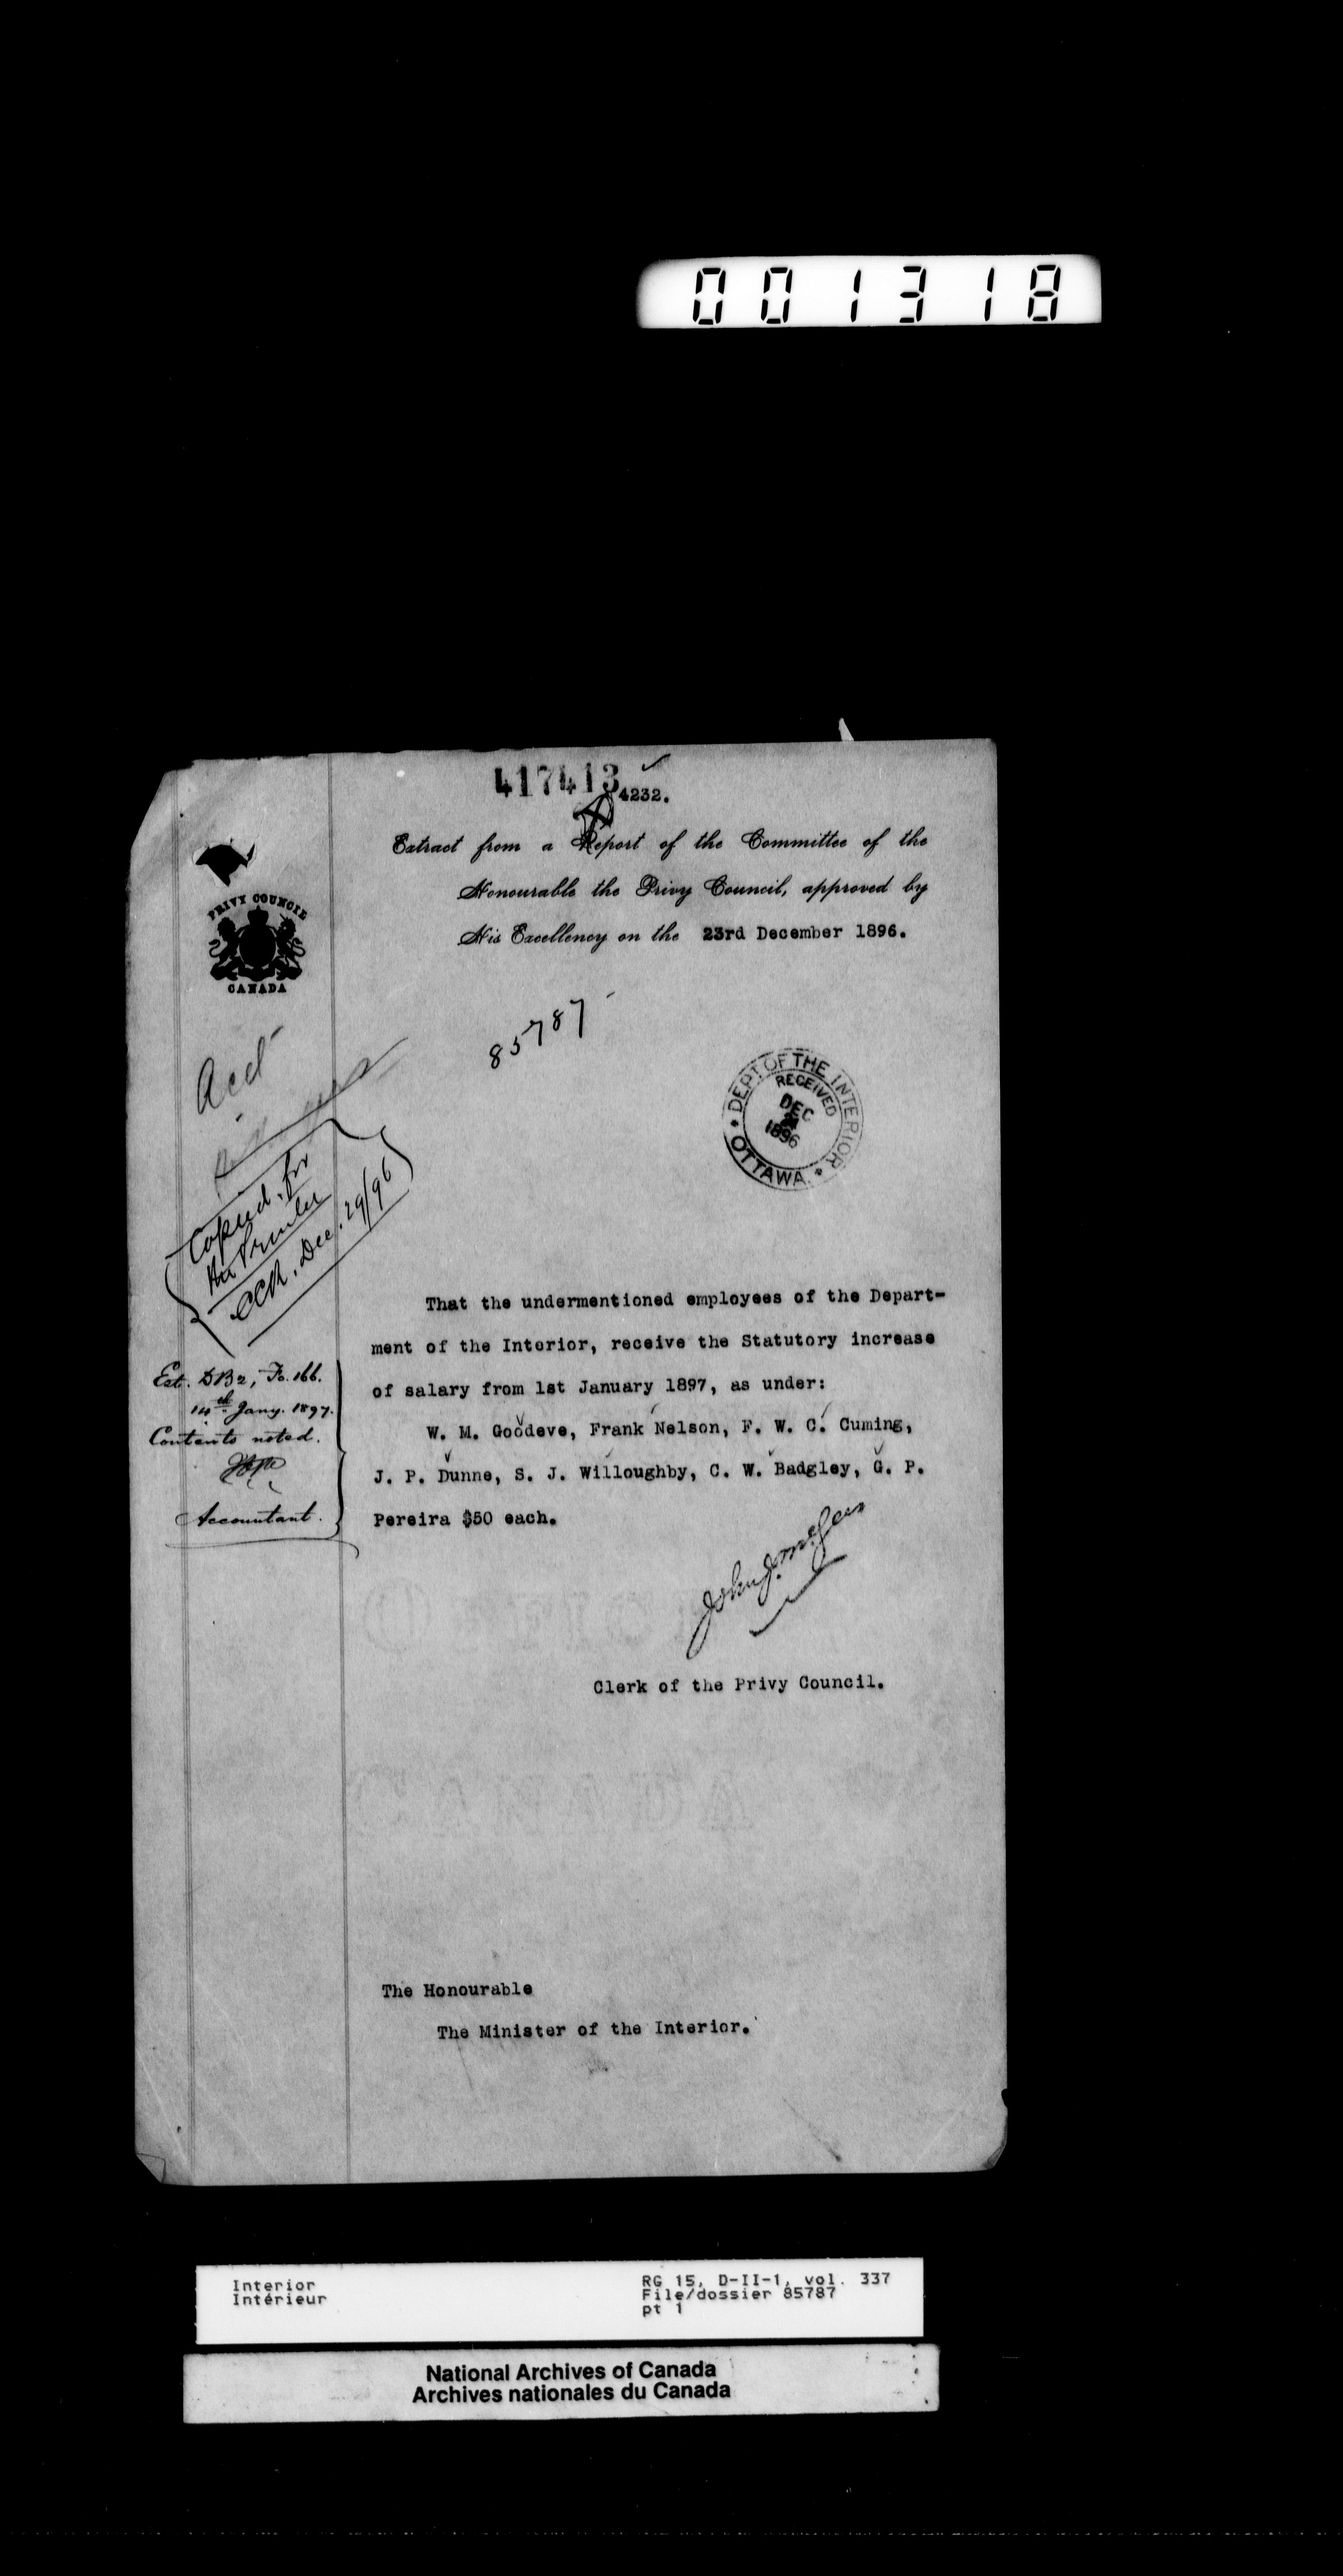 001318
417413
4232.
Extract from a Report of the Committee of the
Honourable the Privy Council, approved by
His Excellency on the 23rd December 1896.
PRIVY COUNCIL
CANADA
85787
Acct
DEPT. OF THE INTERIOR
RECEIVED
DEC
1896
OTTAWA.
Copied for
the Printer
Dec. 29/96
That the undermentioned employees of the Depart-
ment of the Interior, receive the Statutory increase
of salary from 1st January 1897, as under:
W. M. Goodeve, Frank Nelson, F. W. C. Cuming,
J. P. Dunne, S. J. Willoughby, C. W. Badgley, G. P.
Pereira $50 each.
Ext. DB2, Fo. 166.
14th Jany. 1897.
Contents noted.
Accountant.
John J. McGee
Clerk of the Privy Council.
CANADA
The Honourable
The Minister of the Interior.
Interior
Intérieur
RG 15, D-II-1, vol. 337
File/dossier 85787
pt 1
National Archives of Canada
Archives nationales du Canada